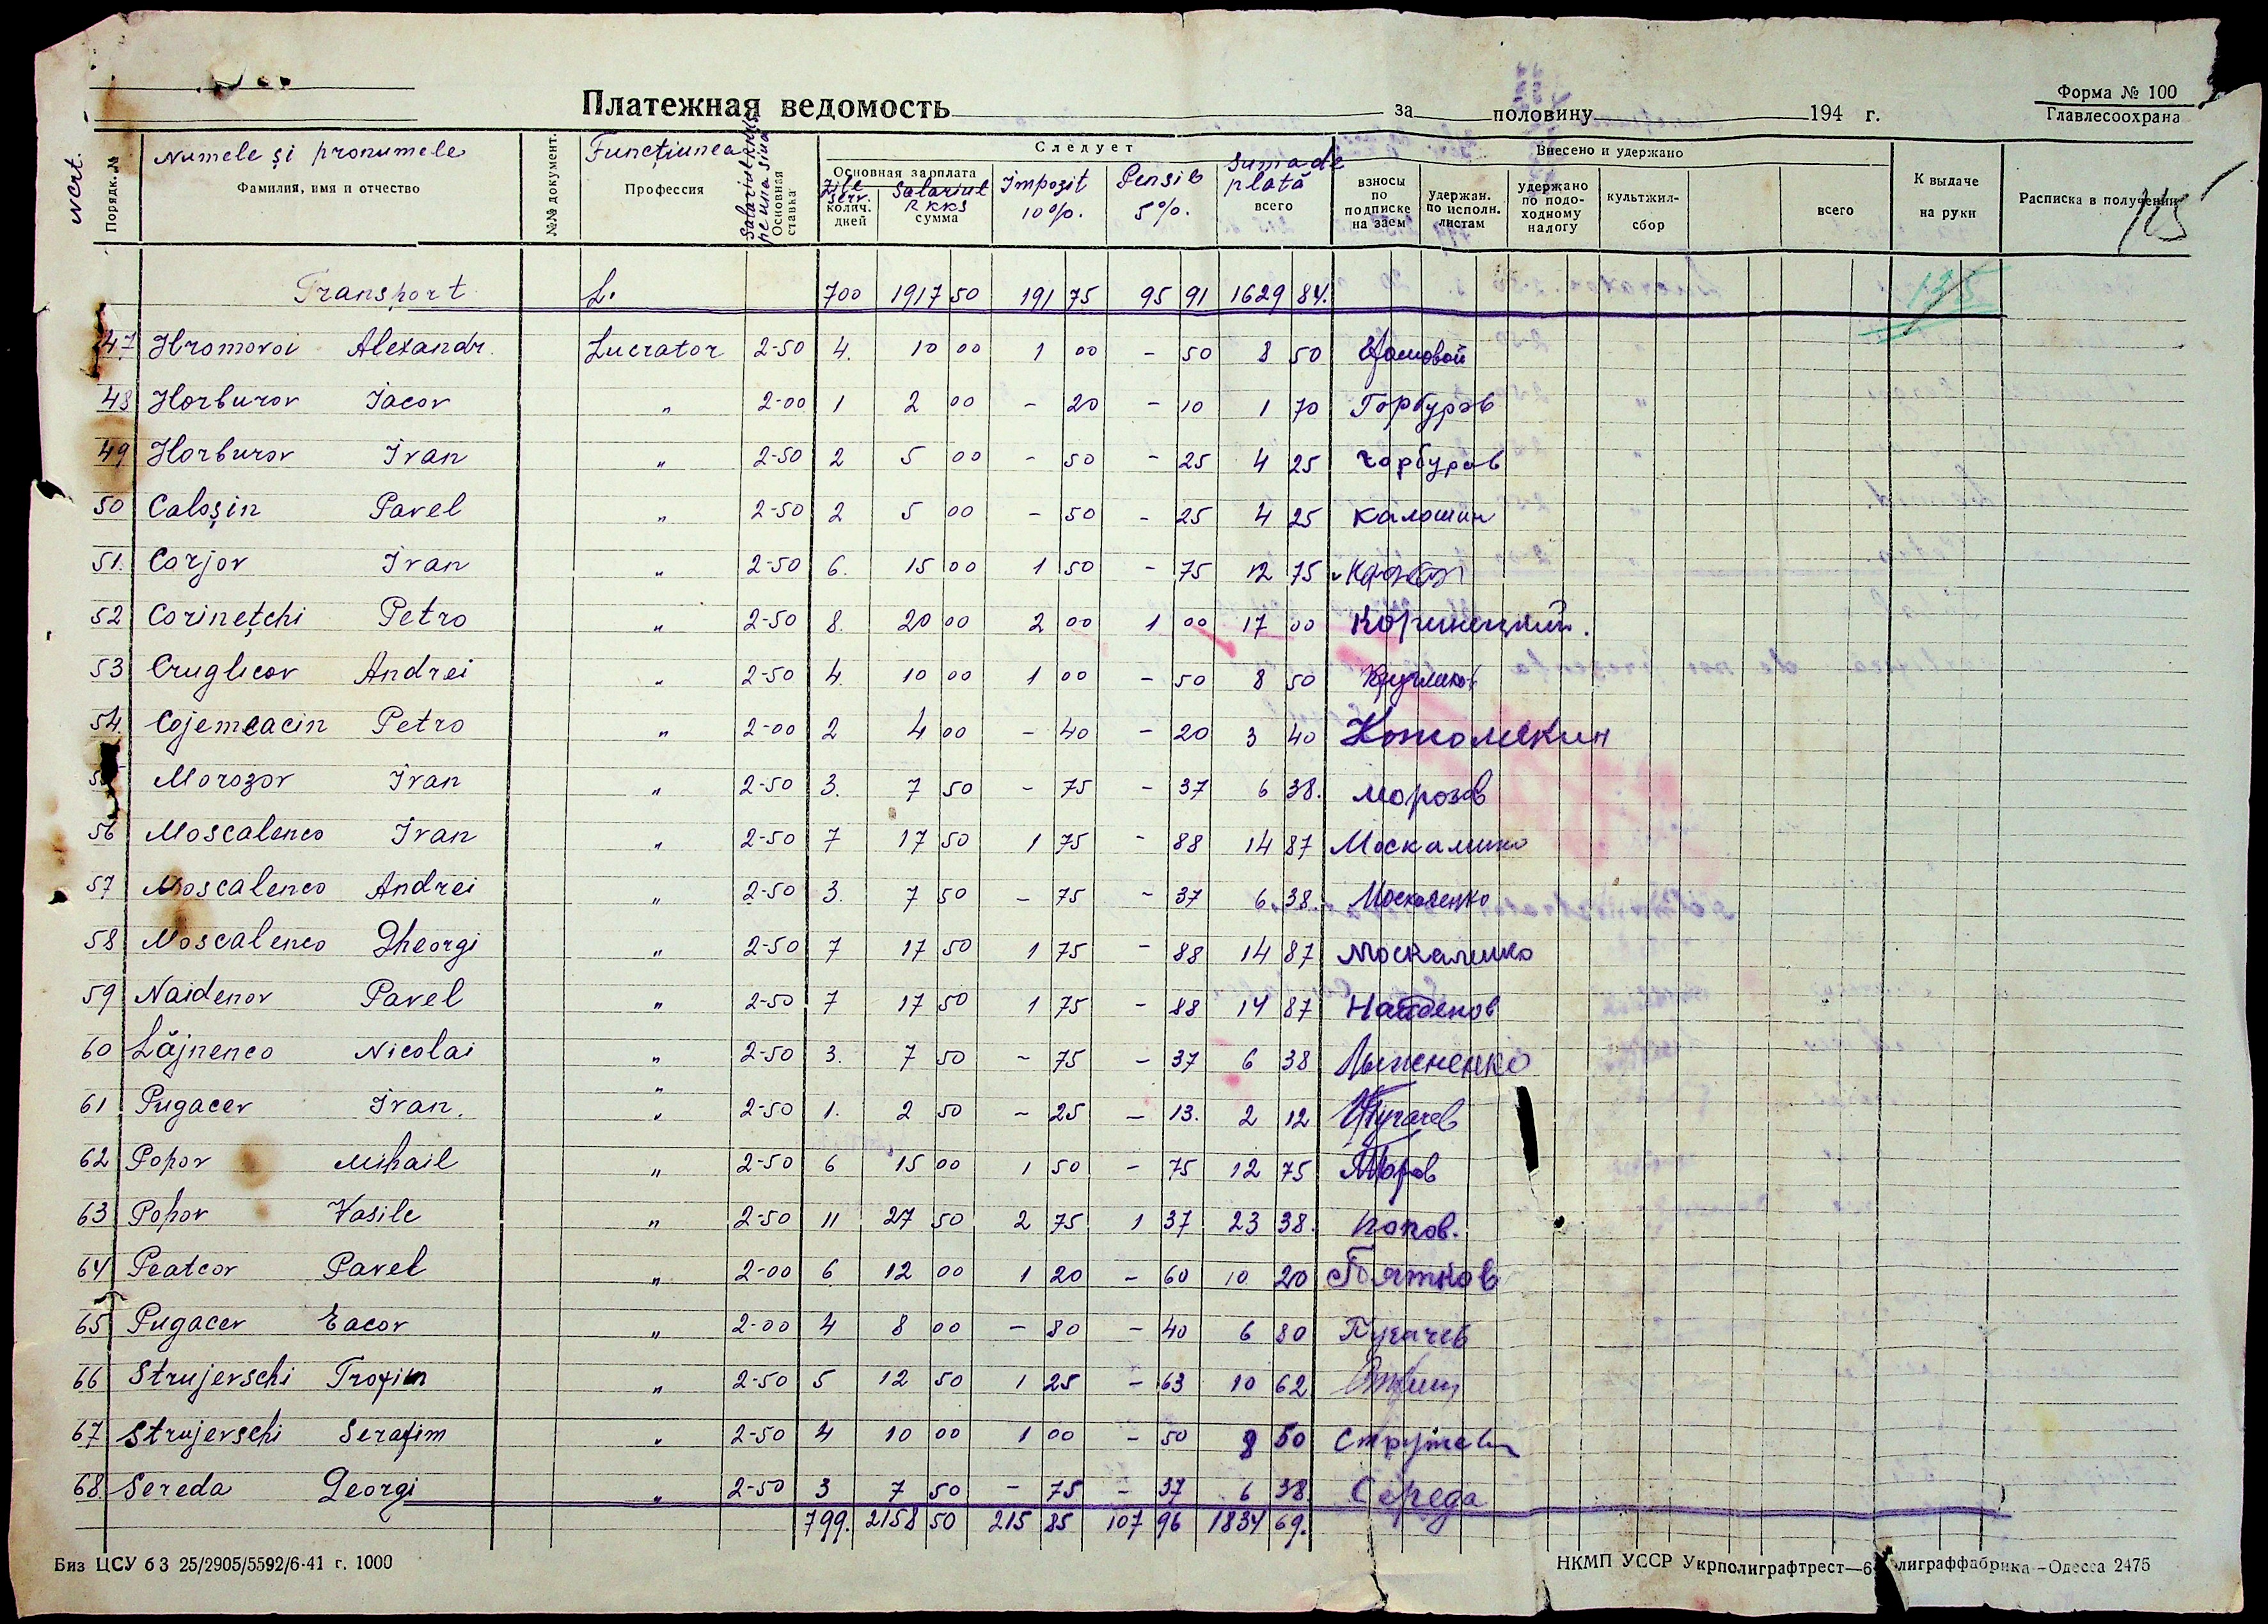 Форма № 100
Главлесоохрана
Платежная ведомость за половину 194 г.
Ncrt.
Порядк. №
Numele și pronumele
Фамилия, имя и отчество
№№ документ.
Funcțiunea
Профессия
Salariul RKKS pe una siua
Основная ставка
Следует
Основная зарплата
Zile serv.
колич. дней
Salariul RKKS
сумма
Impozit 10%.
Pensie 5%.
Suma de plată
всего
Внесено и удержано
взносы по подписке на заем
удержан. по исполн. листам
удержано по подо-ходному налогу
культжил-сбор
всего
К выдаче на руки
Расписка в получении
115
Transport L. 700 1917 50 191 75 95 91 1629 84. 125
47 Hromovoi Alexandr. Lucrator 2-50 4. 10 00 1 00 - 50 8 50 Хромовой
48 Horburov Iacov " 2-00 1 2 00 - 20 - 10 1 70 Горбуров
49 Horburov Ivan " 2-50 2 5 00 - 50 - 25 4 25 горбуров
50 Caloșin Pavel " 2-50 2 5 00 - 50 - 25 4 25 Калошин
51. Corjov Ivan " 2-50 6. 15 00 1 50 - 75 12 75
52 Corinețchi Petro " 2-50 8. 20 00 2 00 1 00 17 00 Кориницкий.
53 Cruglicov Andrei " 2-50 4. 10 00 1 00 - 50 8 50 Кругликов
54. Cojemeacin Petro " 2-00 2 4 00 - 40 - 20 3 40 Кожомекин
55 Morozov Ivan " 2-50 3. 7 50 - 75 - 37 6 38. Морозов
56 Moscalenco Ivan " 2-50 7 17 50 1 75 - 88 14 87 Москаленко
57 Moscalenco Andrei " 2-50 3. 7 50 - 75 - 37 6 38. Москаленко
58 Moscalenco Gheorgi " 2-50 7 17 50 1 75 - 88 14 87 Москаленко
59 Naidenov Pavel " 2-50 7 17 50 1 75 - 88 14 87 Найденов
60 Lăjnenco Nicolai " 2-50 3. 7 50 - 75 - 37 6 38 Лыжненко
61 Pugacev Ivan. " 2-50 1. 2 50 - 25 - 13. 2 12 Пугачев
62 Popov Mihail " 2-50 6 15 00 1 50 - 75 12 75
63 Popov Vasile " 2-50 11 27 50 2 75 1 37 23 38. Попов.
64 Peatcov Pavel " 2-00 6 12 00 1 20 - 60 10 20 Пятков
65 Pugacev Eacov " 2-00 4 8 00 - 80 - 40 6 80 Пугачев
66 Strujevschi Trofim " 2-50 5 12 50 1 25 - 63 10 62
67 Strujevschi Serafim " 2-50 4 10 00 1 00 - 50 8 50
68 Sereda Georgi " 2-50 3 7 50 - 75 - 37 6 38 Середа
799. 2158 50 215 85 107 96 1834 69.
Биз ЦСУ б 3 25/2905/5592/6-41 г. 1000
НКМП УССР Укрполиграфтрест—6 лиграффабрика—Одесса 2475